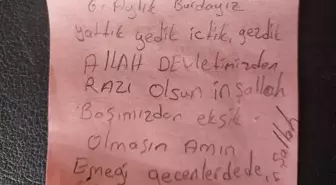 6. Aylık Burdayız
yattık yedik içtik, gezdik
ALLAH DEVLETİMİZDEN
RAZI OLSUN inşallah
Başımızdan eksik
olmasın Amin
Emeği geçenlerdede,